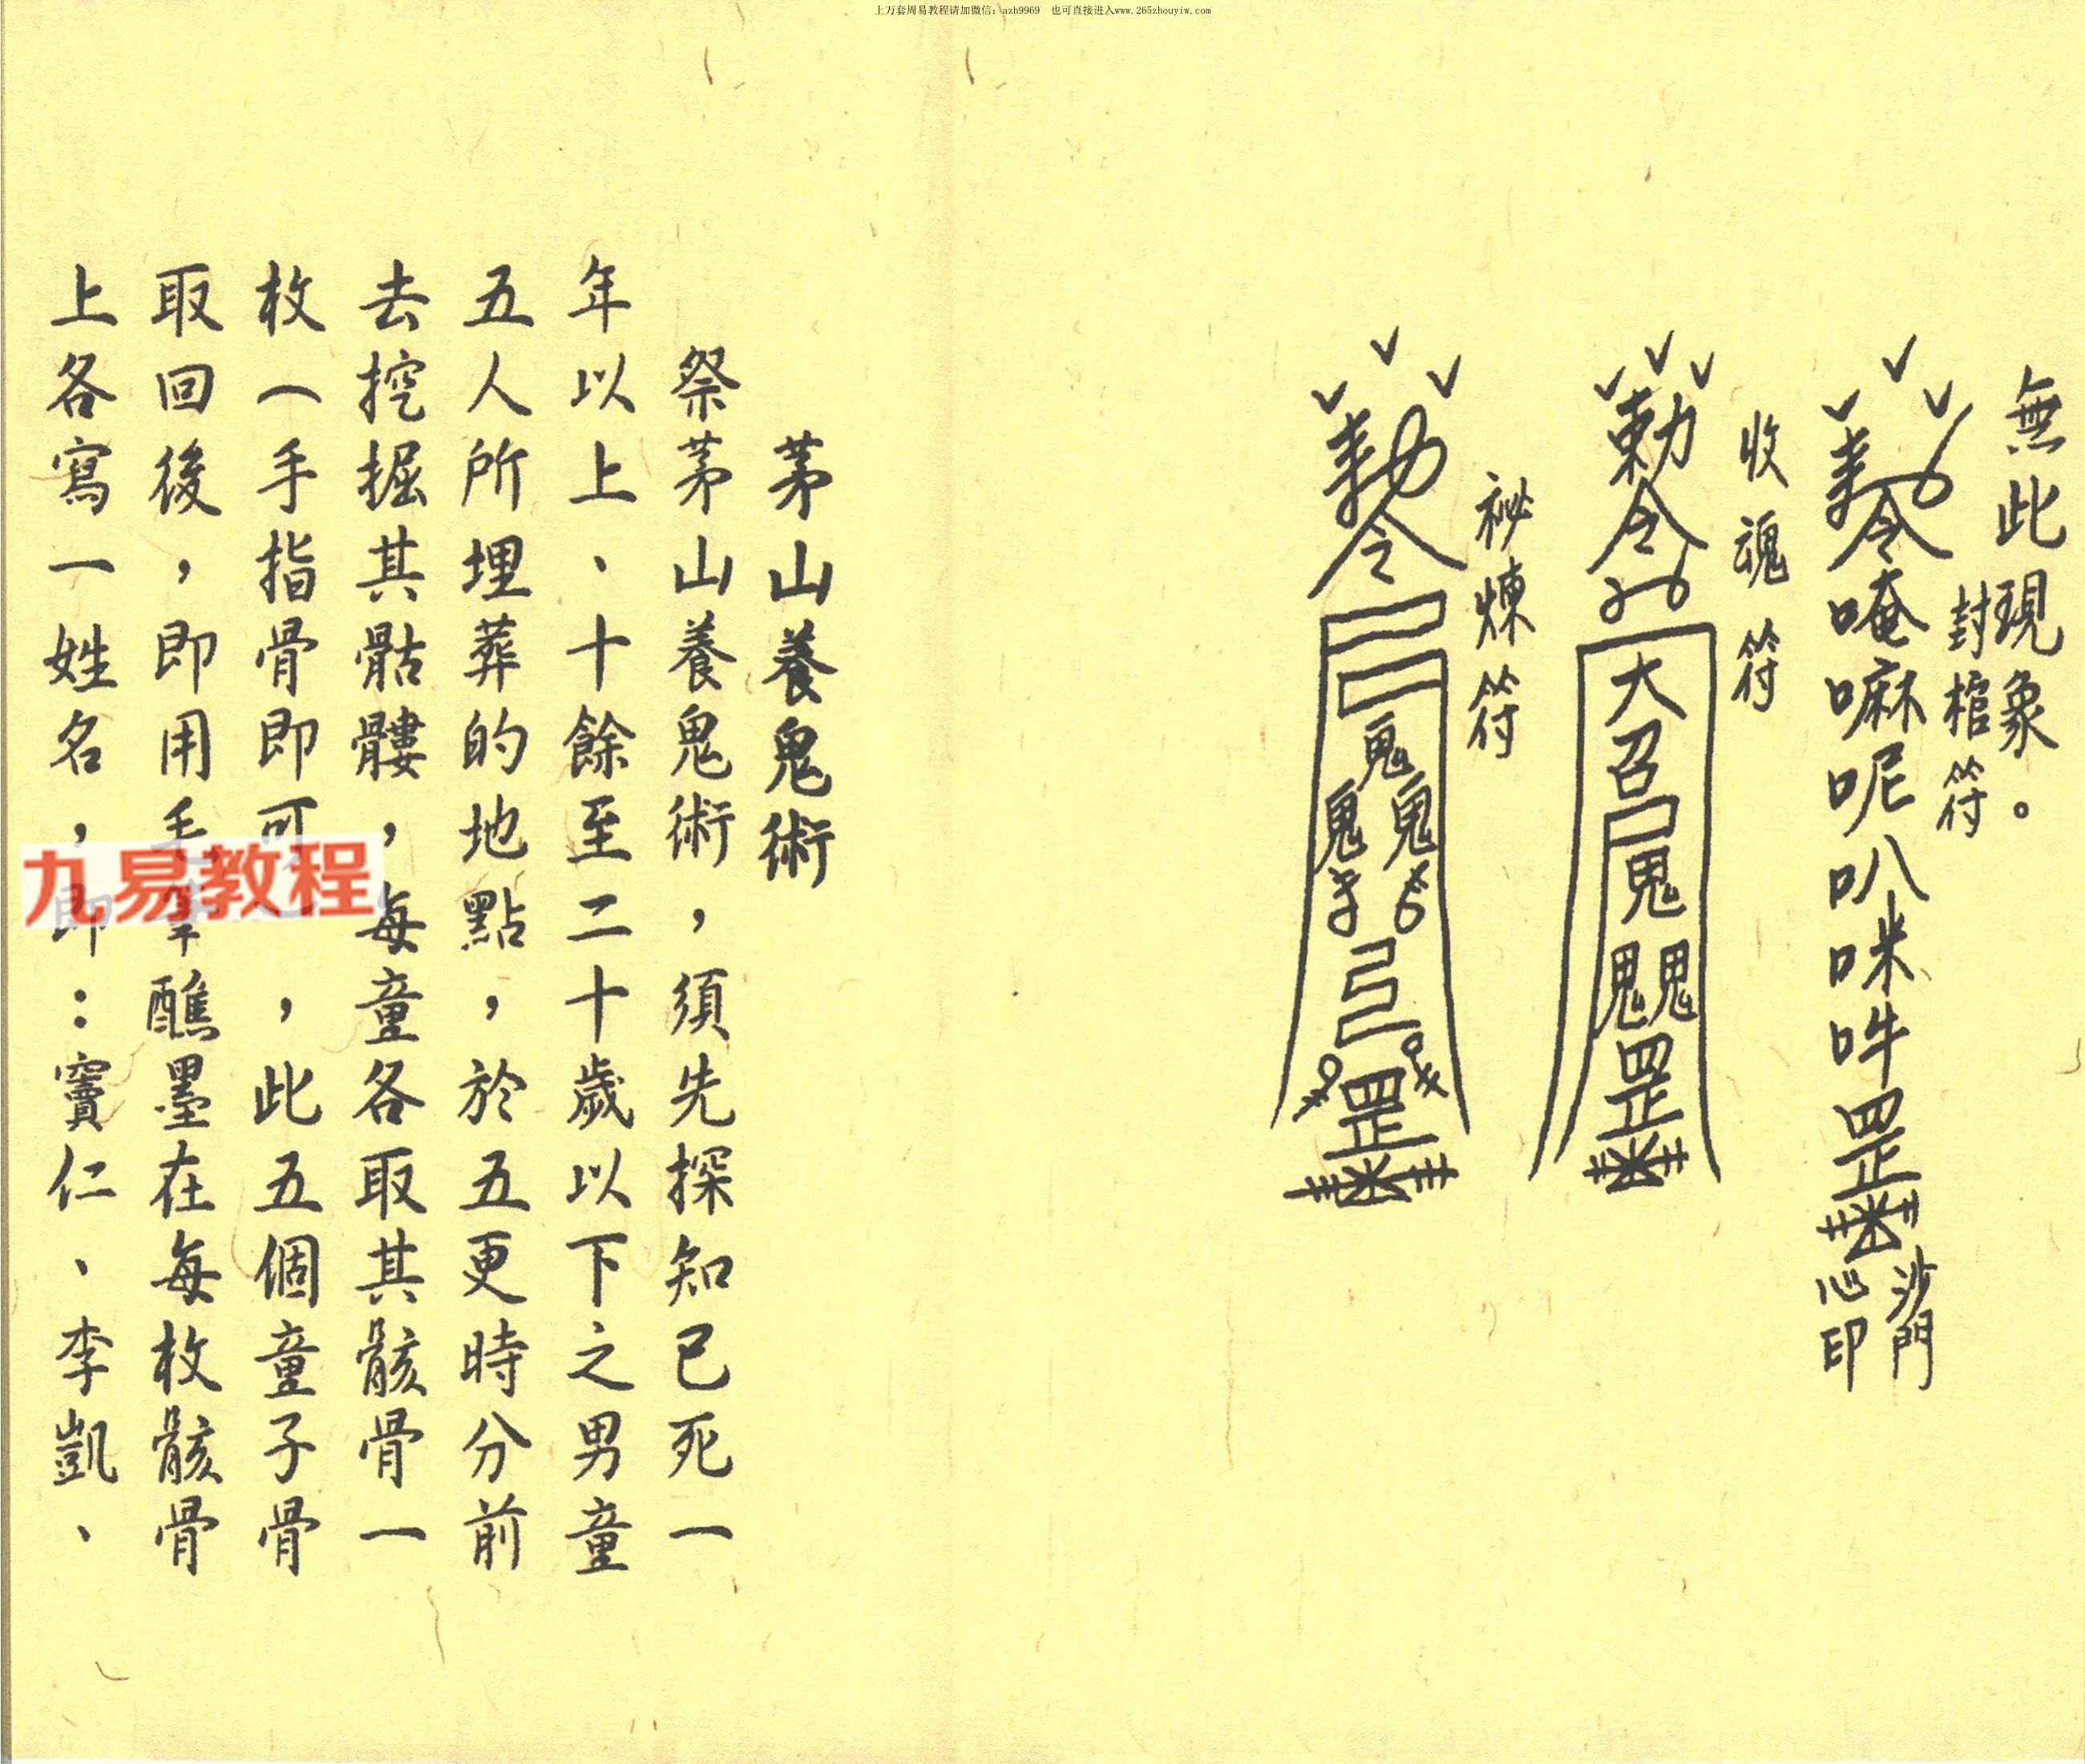 上万套周易教程请加微信：azh9969　也可直接进入www.265zhouyiw.com
無此現象。
封棺符
勅令唵嘛呢叭咪吽罡
沙門
心印
收魂符
勅令
大召鬼鬼鬼罡
祕煉符
勅令
鬼鬼鬼
罡
茅山養鬼術
祭茅山養鬼術，須先探知已死一
年以上、十餘至二十歲以下之男童
五人所埋葬的地點，於五更時分前
去挖掘其骷髏，每童各取其骸骨一
枚（手指骨即可，此五個童子骨
取回後，即用毛筆醮墨在每枚骸骨
上各寫一姓名，即：竇仁、李凱、
九易教程